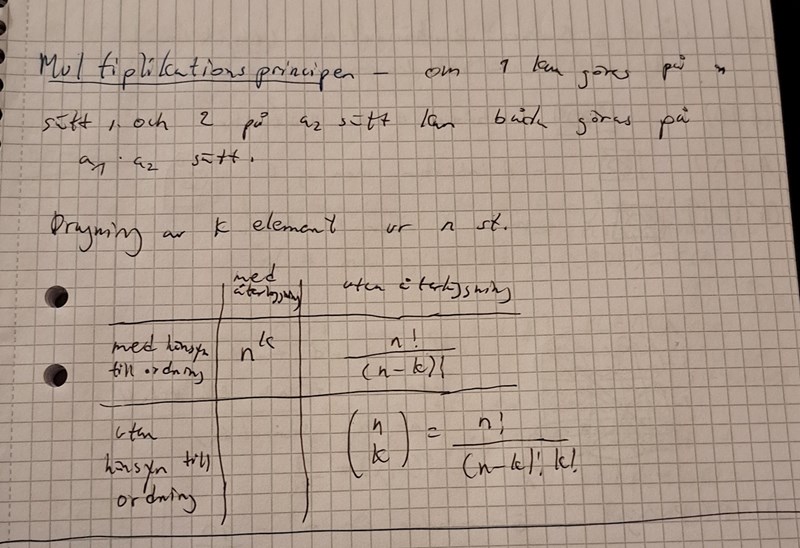 Multiplikationsprincipen – om 1 kan göras på n
sätt, och 2 på a₂ sätt kan båda göras på
a₁ · a₂ sätt.
Dragning av k element ur n st.
med återläggning | utan återläggning
med hänsyn till ordning | n^k | n! / (n-k)!
utan hänsyn till ordning | (n k) = n! / (n-k)! k!